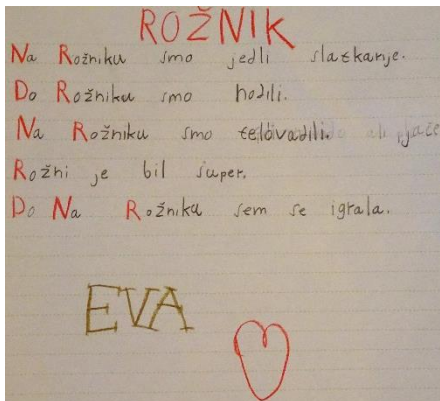 ROŽNIK
Na Rožniku smo jedli slatkarije.
Do Rožniku smo hodili.
Na Rožniku smo telovadili.
Rožni je bil super.
Do Na Rožniku sem se igrala.
EVA